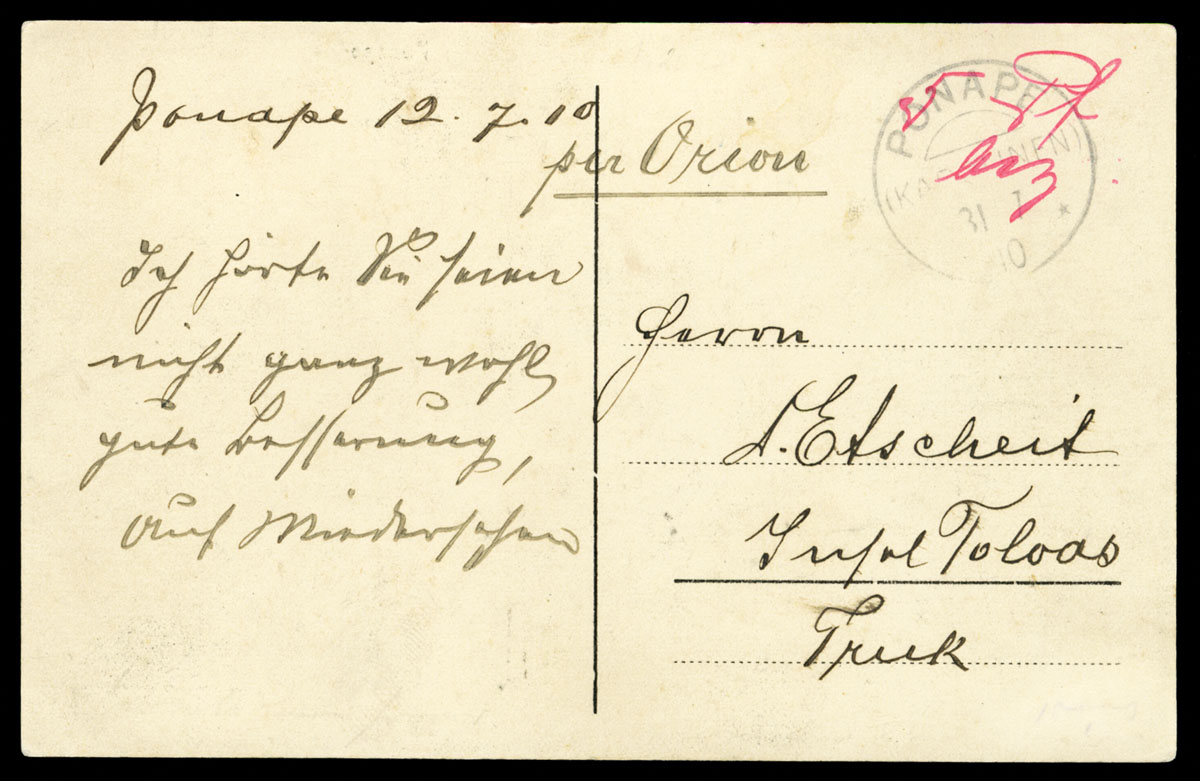 Ponape 12. 7. 10
per Orion
Ich hörte Sie seien
nicht ganz wohl,
gute Besserung,
Auf Wiedersehen
PONAPE
(KAROLINEN)
31 7
10
5 Pf
Herrn
D. Etscheit
Insel Toloas
Truk